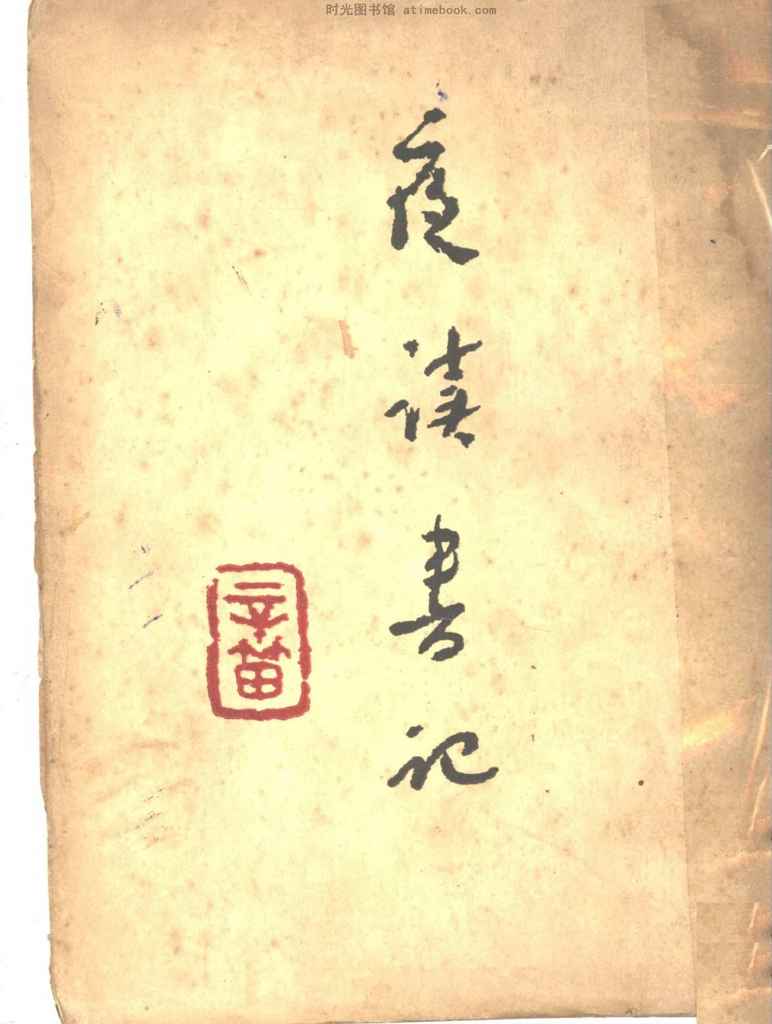 时光图书馆 atimebook.com
夜读书记
辛笛